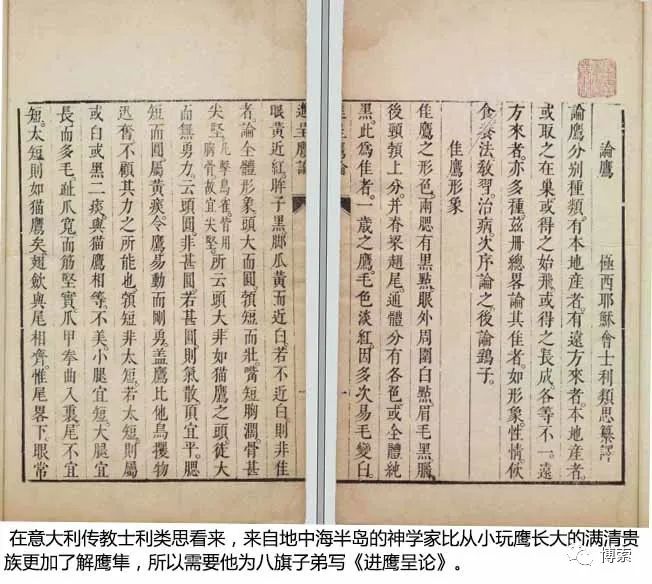 論鷹 極西耶穌會士利類思纂譯
論鷹分別種類。有本地產者。有遠方來者。本地產者。
或取之在巢。或得之始飛。或得之長成。各等不一。遠
方來者。亦多種。茲册總畧論其佳者。如形象。性情。佽
食養法。教習。治病。次序論之。後論鷂子。
佳鷹形象
佳鷹之形色。兩腮有黑點。眼外周圍白點。眉毛黑。臘
後頸領上分。并脊梁翅尾。通體分有各色。或全體純
黑。此為佳者。一歲之鷹。毛色淡紅。因多次易毛變白。
進呈鷹論
眼黃近紅。眸子黑。脚瓜黃而近白。若不近白則非佳
者。論全體形象。頭大而圓。領短而壯。嘴短胸濶。骨甚
尖堅。凡擊鳥雀皆用胸骨故宜尖堅。所云頭大非如猫鷹之頭。徒大
而無勇力。云頭圓。非甚圓。若甚圓。則氣散。頂宜平。腮
短而圓。屬黃痰。令鷹易動而剛勇。蓋鷹比他鳥攫物
迅奮。不顧其力之所能也。領短非太短。若太短。則屬
或白或黑二痰。與猫鷹相等。不美。小腿宜短。大腿宜
長而多毛。趾爪寬而筋堅實。爪甲拳曲入裏。尾不宜
短。太短則如猫鷹矣。翅歛與尾相齊。惟尾畧下。眼常
在意大利传教士利类思看来，来自地中海半岛的神学家比从小玩鹰长大的满清贵
族更加了解鹰隼，所以需要他为八旗子弟写《进鹰呈论》。
博索